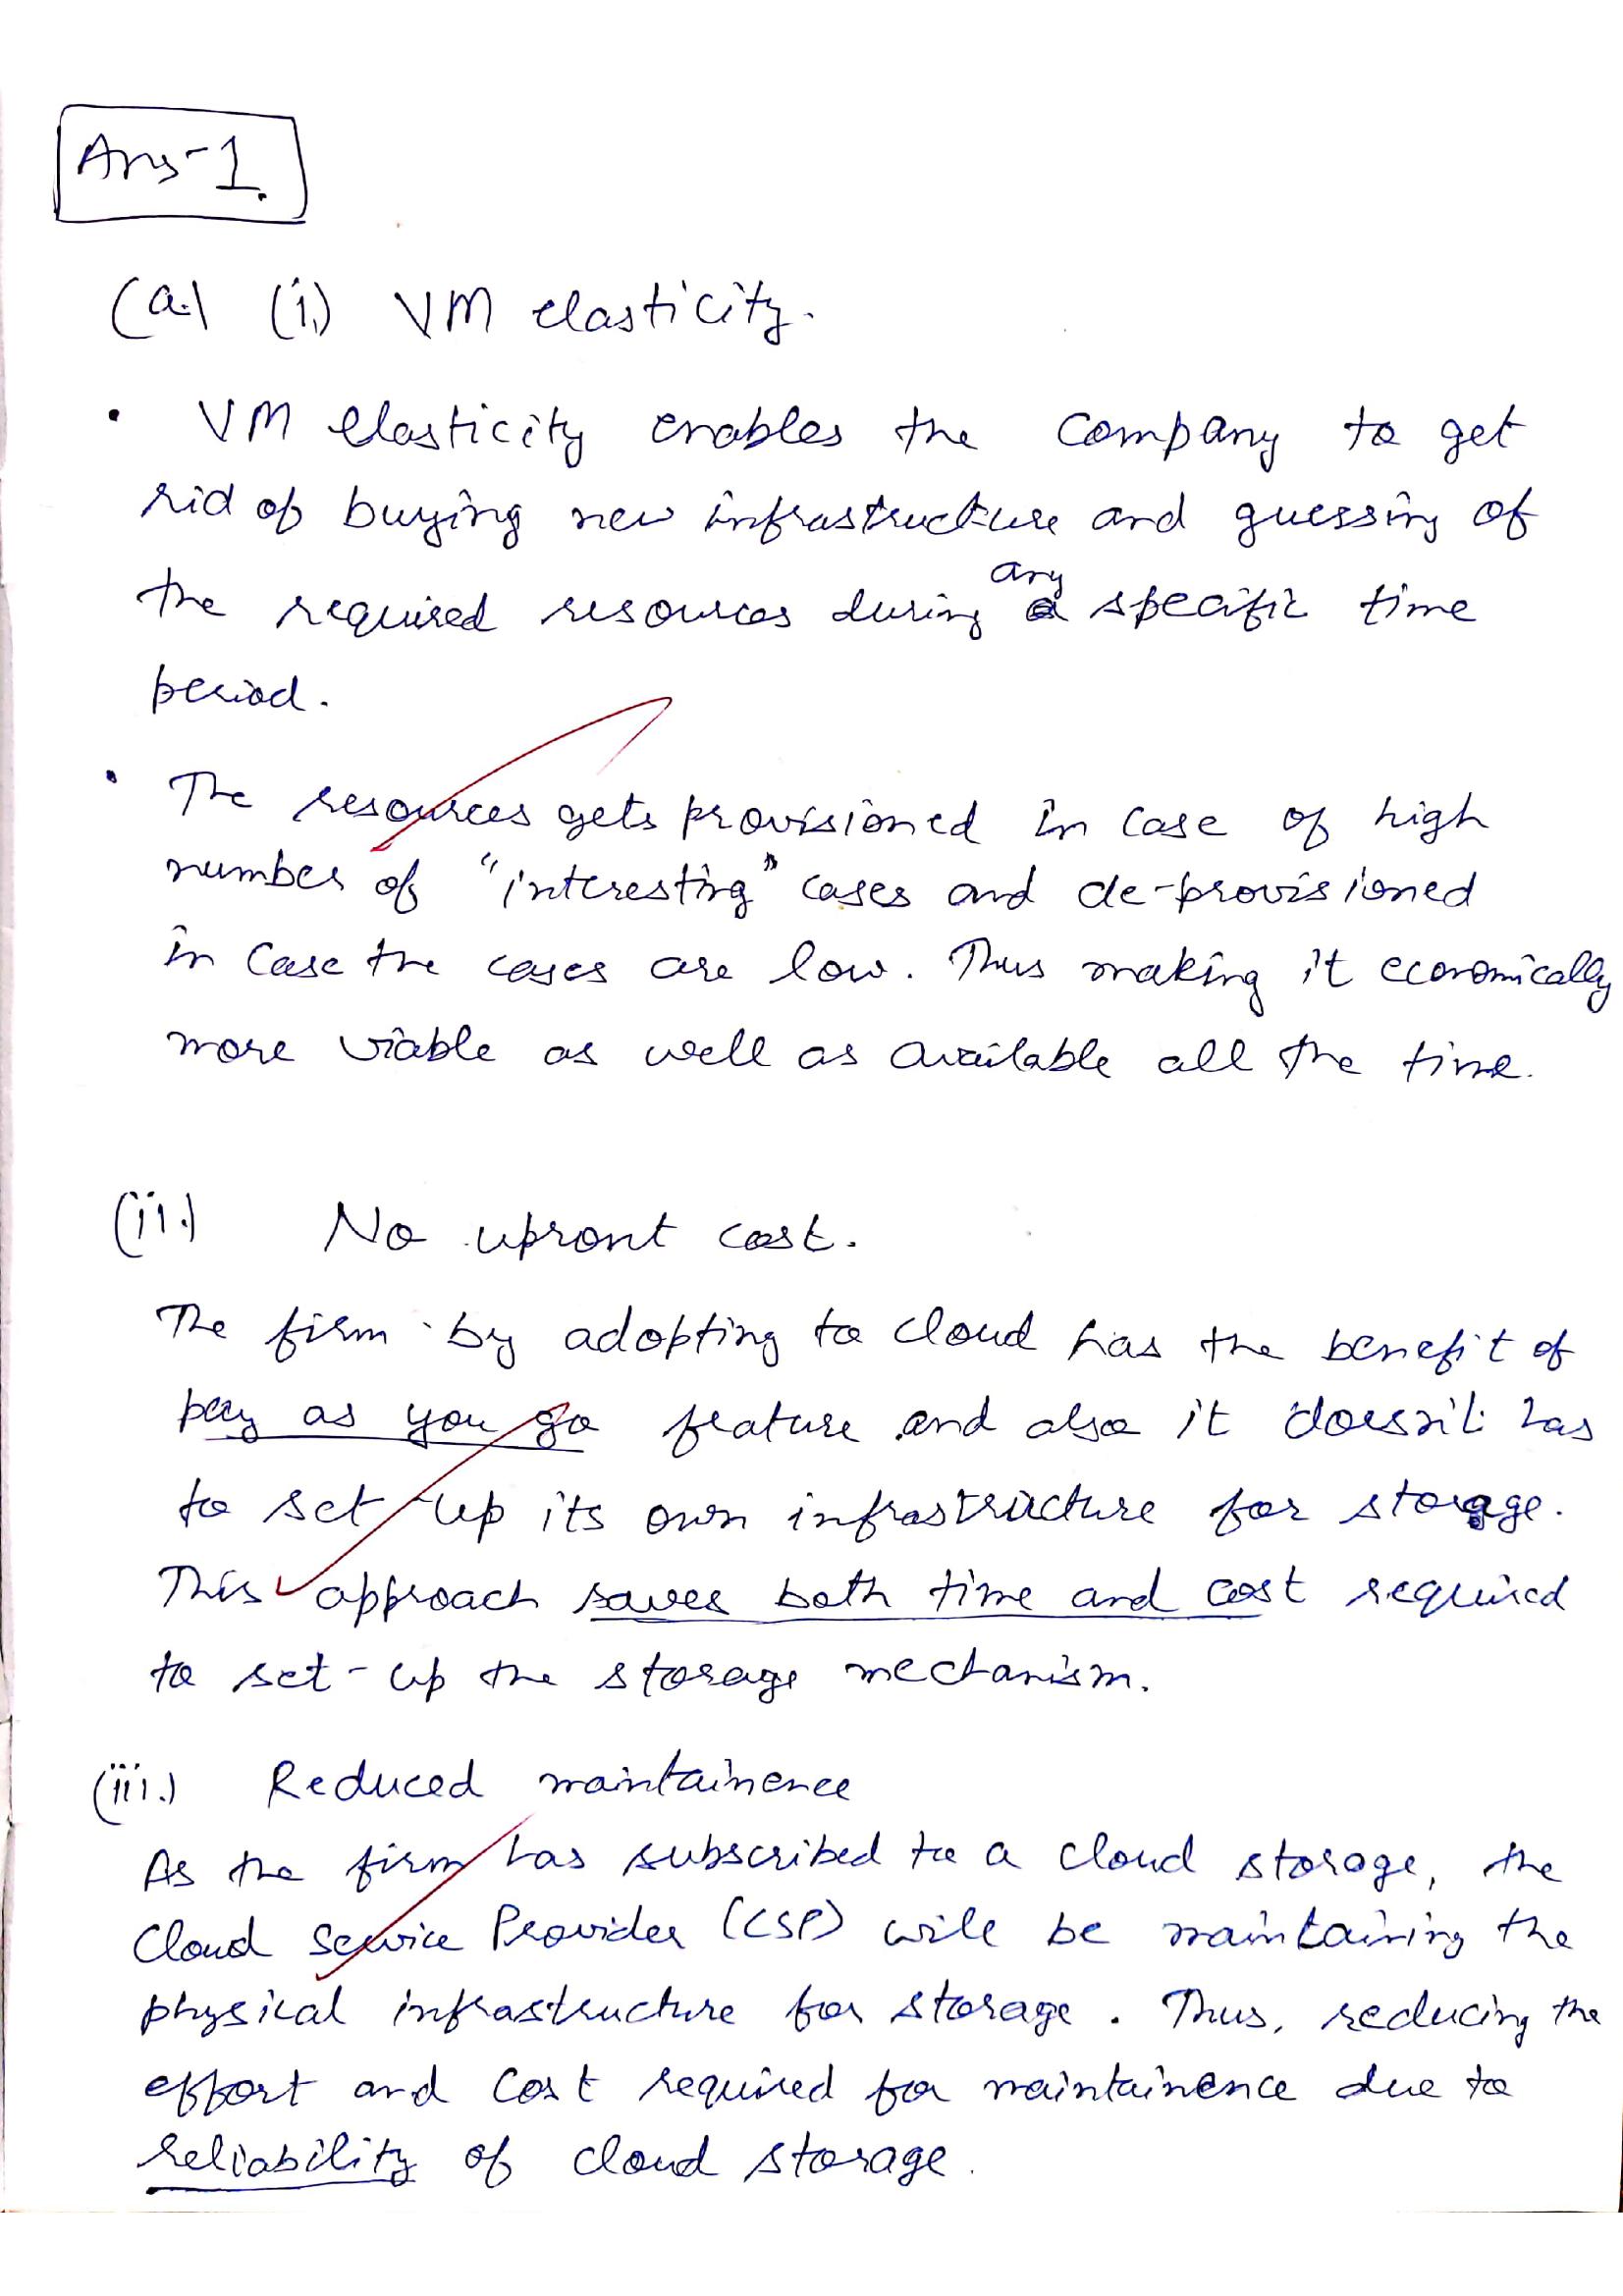 Ans-1.
(a.) (i.) VM elasticity.
• VM elasticity enables the company to get
rid of buying new infrastructure and guessing of
the required resources during any specific time
period.
• The resources gets provisioned in case of high
number of "interesting" cases and de-provisioned
in case the cases are low. Thus making it economically
more viable as well as available all the time.
(ii.) No upront cost.
The firm by adopting to cloud has the benefit of
pay as you go feature and also it doesn't has
to set-up its own infrastructure for storage.
This approach saves both time and cost required
to set-up the storage mechanism.
(iii.) Reduced maintainence
As the firm has subscribed to a cloud storage, the
Cloud Service Provider (CSP) will be maintaining the
physical infrastructure for storage. Thus, reducing the
effort and cost required for maintainence due to
reliability of cloud storage.